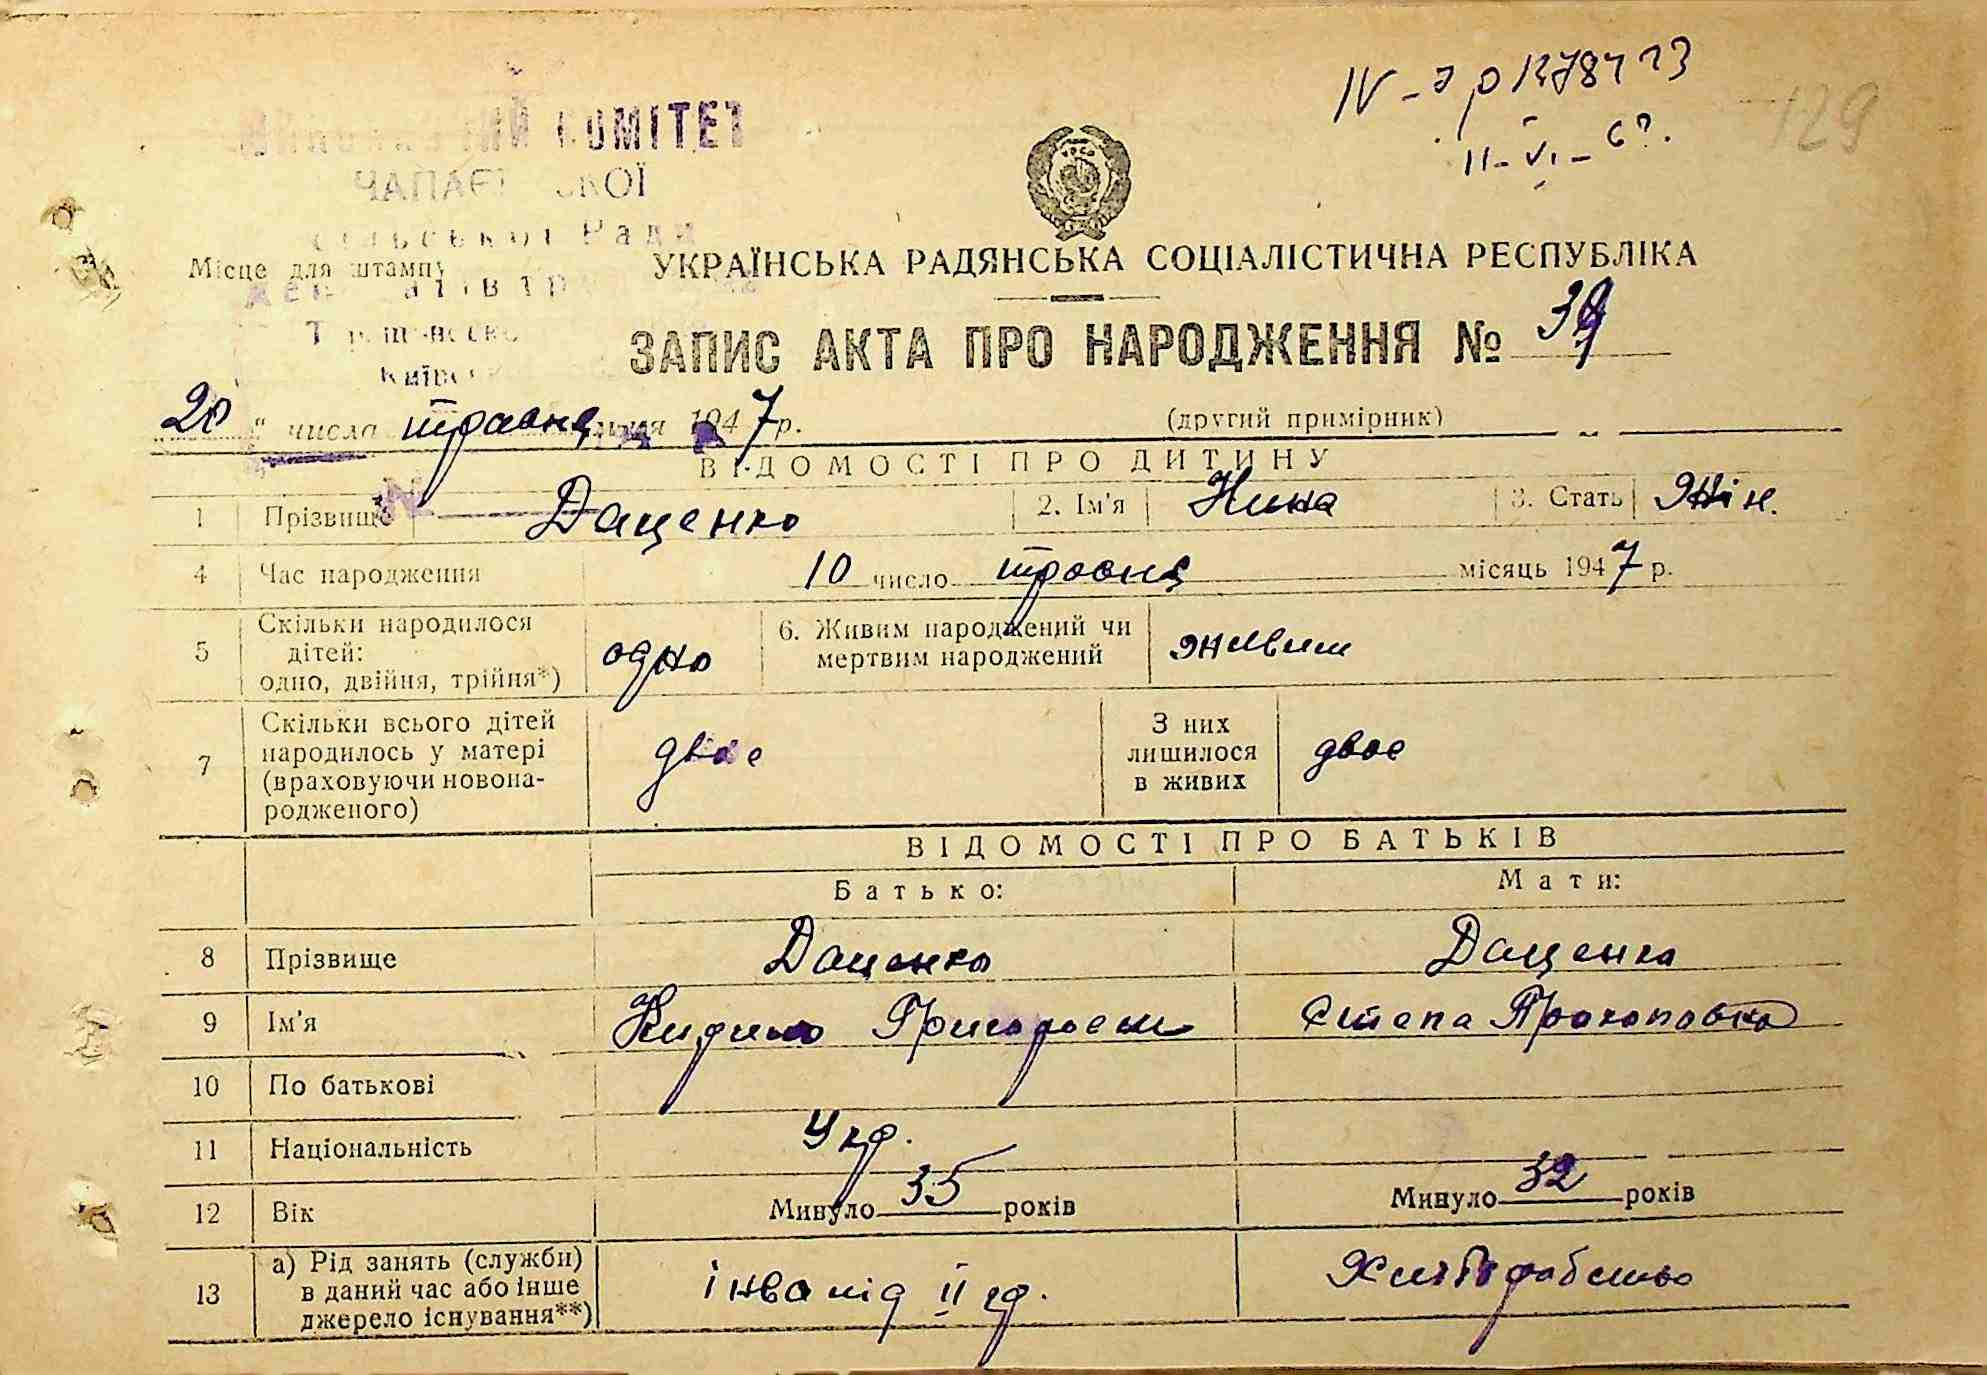 129
КОМІТЕТ
сільської Ради
Місце для штампу
УКРАЇНСЬКА РАДЯНСЬКА СОЦІАЛІСТИЧНА РЕСПУБЛІКА
ЗАПИС АКТА ПРО НАРОДЖЕННЯ № 39
20 " числа травня 1947 р.
(другий примірник)
ВІДОМОСТІ ПРО ДИТИНУ
1 Прізвище Даценко 2. Ім'я Нина 3. Стать Жін.
4 Час народження 10 число травня місяць 1947 р.
5 Скільки народилося дітей: одно, двійня, трійня*) одно 6. Живим народжений чи мертвим народжений живим
7 Скільки всього дітей народилось у матері (враховуючи новона-родженого) двоє З них лишилося в живих двоє
ВІДОМОСТІ ПРО БАТЬКІВ
Батько: Мати:
8 Прізвище Даценко Даценко
9 Ім'я Григорович Прокоповна
10 По батькові
11 Національність Укр.
12 Вік Минуло 35 років Минуло 32 років
13 а) Рід занять (служби) в даний час або інше джерело існування**) інвалід II гр.